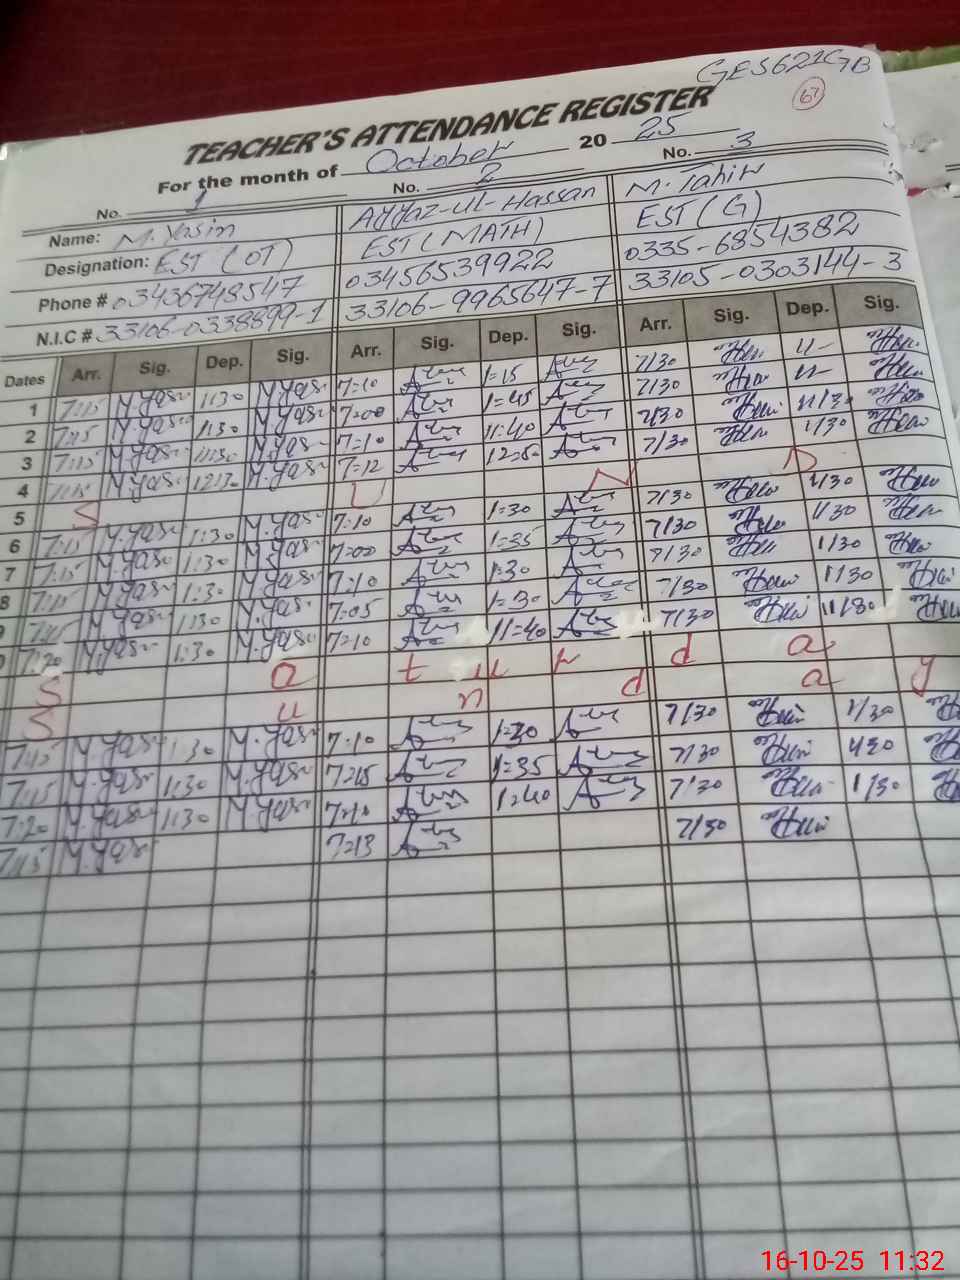 GES621GB
67
TEACHER'S ATTENDANCE REGISTER
For the month of October 20 25
No. 1 No. 2 No. 3
Name: M.Yasin Ayyaz-ul-Hassan M.Tahir
Designation: EST (OT) EST (MATH) EST (G)
Phone # 03436748547 03456539922 0335-6854382
N.I.C # 33106-0338899-1 33106-9965647-7 33105-0303144-3
Dates Arr. Sig. Dep. Sig. Arr. Sig. Dep. Sig. Arr. Sig. Dep. Sig.
1 7:15 M.Yasin 1:30 M.Yasin 7=10 1=15 7/30
2 7:15 M.Yasin 1:30 M.Yasin 7=00 1=45 7/30
3 7:15 M.Yasin 11:30 M.Yasin 7=10 11:40 7/30 11/30
4 7:15 M.Yasin 12:30 M.Yasin 7=12 7/30 1/30
5 S U N D
6 7:15 M.Yasin 1:30 M.Yasin 7:10 1=30 7/30 1/30
7 7:15 M.Yasin 1:30 M.Yasin 7=00 1=35 7/30 1/30
8 7:15 M.Yasin 1:30 M.Yasin 7=10 1:30 7/30 1/30
7:15 M.Yasin 1:30 M.Yasin 7=05 1=30 7/30 1/30
7:20 M.Yasin 1:30 M.Yasin 7=10 11=40 7/30 11/30
S a t u r d a y
S u n d a y
7:15 M.Yasin 1:30 M.Yasin 7:10 1=30 7/30 1/30
7:15 M.Yasin 1:30 M.Yasin 7=15 1=35 7/30 1/30
7:20 M.Yasin 1:30 M.Yasin 7=10 1=40 7/30 1/30
7:15 M.Yasin 7=13 7/30
16-10-25 11:32